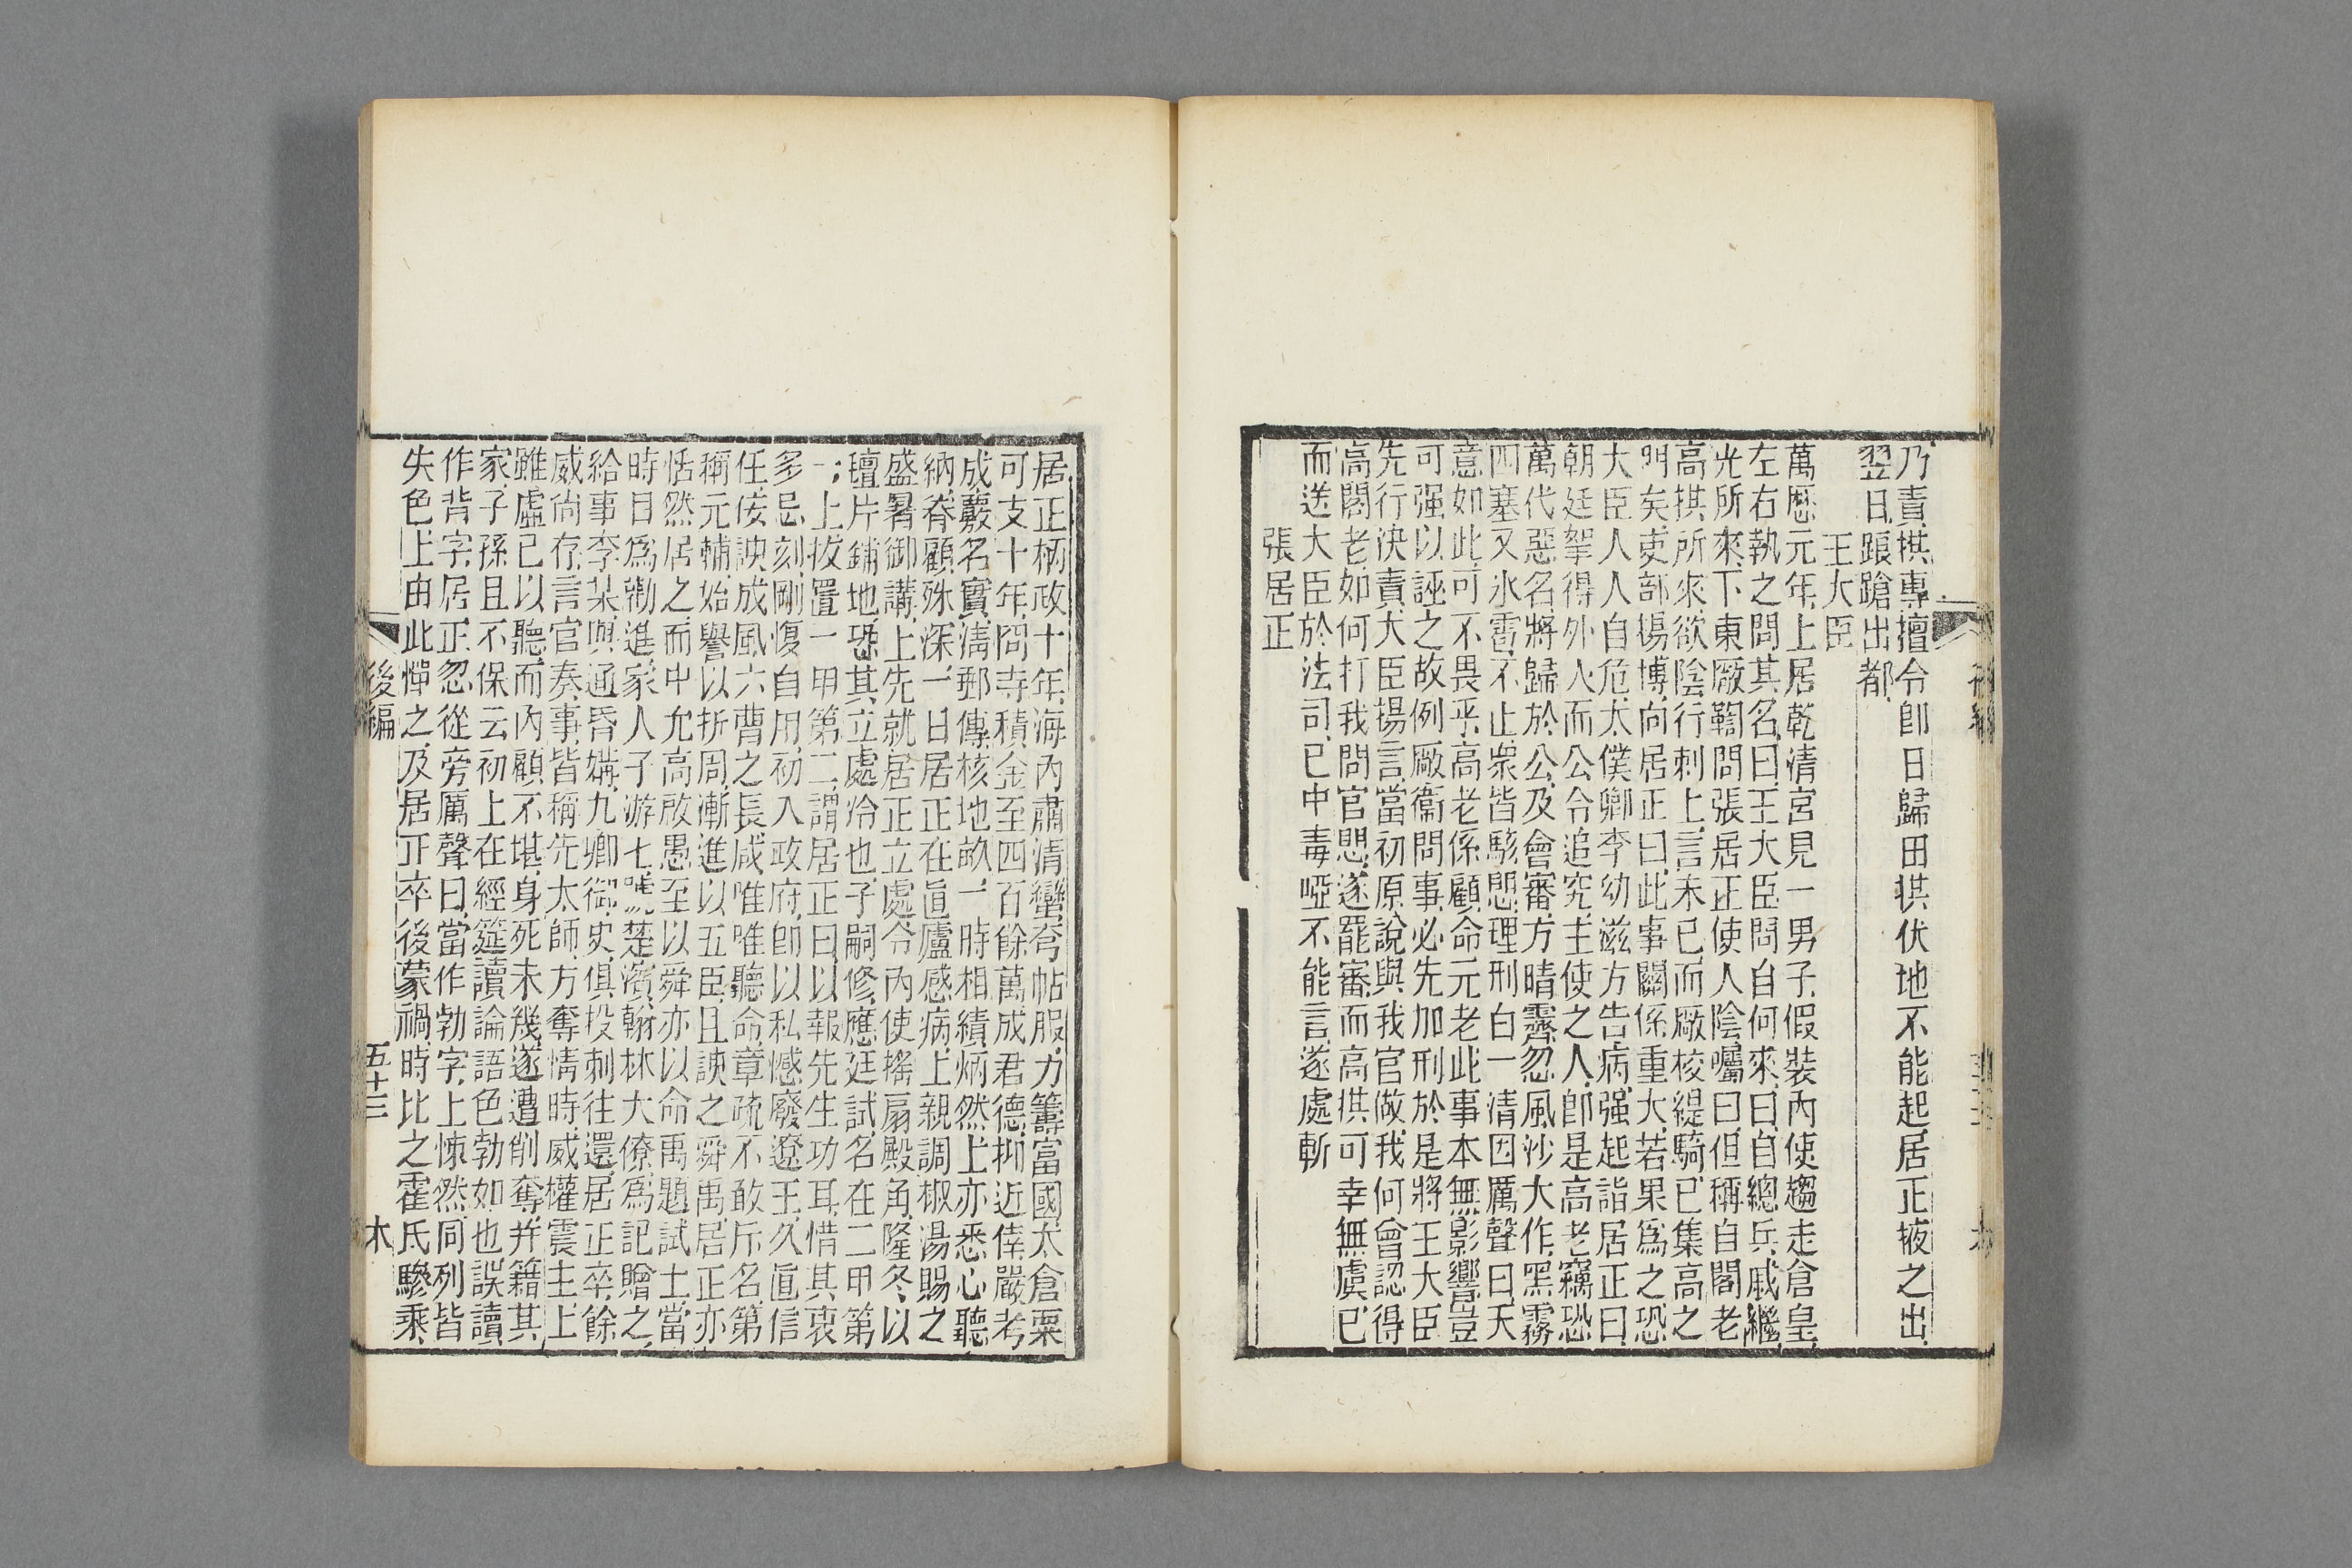 乃責拱專擅令卽日歸田拱伏地不能起居正掖之出
翌日踉蹌出都
王大臣
萬厯元年上居乾清宮見一男子假裝內使趨走倉皇
左右執之問其名曰王大臣問自何來曰自總兵戚繼
光所來下東厰鞫問張居正使人陰囑曰但稱自閣老
高拱所來欲陰行刺上言未已而厰校緹騎已集高之
門矣吏部楊博向居正曰此事關係重大若果爲之恐
大臣人人自危太僕卿李幼滋方告病强起詣居正曰
朝廷拏得外人而公令追究主使之人卽是高老竊恐
萬代惡名將歸於公及會審方晴霽忽風沙大作黑霧
四塞又氷雹不止衆皆駭愳理刑白一清因厲聲曰天
意如此可不畏乎高老係顧命元老此事本無影響豈
可强以誣之故例厰衞問事必先加刑於是將王大臣
先行決責大臣揚言當初原說與我官做我何曾認得
高閣老如何打我問官愳遂罷審而高拱可幸無虞已
而送大臣於法司已中毒啞不能言遂處斬
張居正
居正柄政十年海內肅清蠻夸帖服力籌富國太倉粟
可支十年冏寺積金至四百餘萬成君德抑近倖嚴考
成覈名實清郵傳核地畝一時相績炳然上亦悉心聽
納眷顧殊深一日居正在直廬感病上親調椒湯賜之
盛暑御講上先就居正立處令內使搖扇殿角隆冬以
氊片鋪地恐其立處冷也子嗣修應廷試名在二甲第
一上拔置一甲第二謂居正曰以報先生功耳惜其衷
多忌刻剛愎自用初入政府卽以私憾廢遼王久直信
任佞諛成風六曹之長咸唯唯聽命章疏不敢斥名第
稱元輔始譽以折周漸進以五臣且諛之舜禹居正亦
恬然居之而中允高啟愚至以舜亦以命禹題試士當
時目爲勸進家人子游七號楚濱翰林大僚爲記贈之
給事李某與通昏媾九卿御史俱投刺往還居正卒餘
威尚存言官奏事皆稱先太師方奪情時威權震主上
雖虛已以聽而內顧不堪身死未幾遂遭削奪并籍其
家子孫且不保云初上在經筵讀論語色勃如也誤讀
作背字居正忽從旁厲聲曰當作勃字上悚然同列皆
失色上由此憚之及居正卒後蒙禍時比之霍氏驂乘
後編
五十三